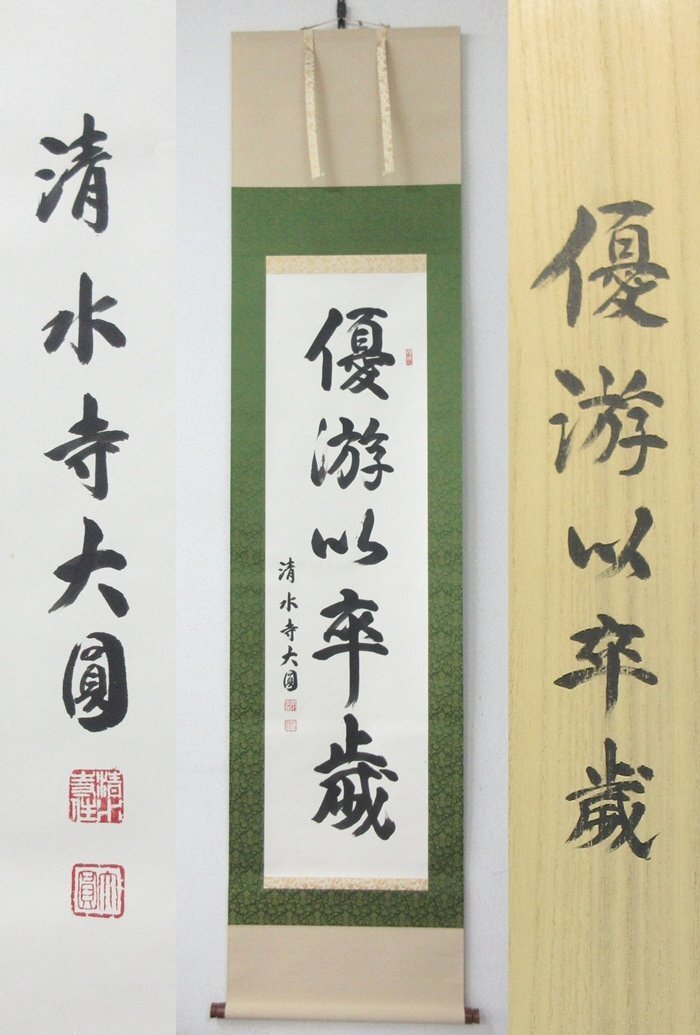 優游以卒歲
清水寺大圓
清水寺大圓
優游以卒歲